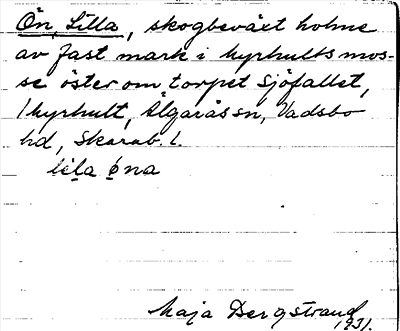 Ön, Lilla, skogbeväxt holme
av fast mark i Kyrkults mos-
se öster om torpet Sjöfallet,
Kyrkult, Älgarås sn, Vadsbo
hd, Skarab. l.
ḷịla ọna
Maja Bergstrand
1931.